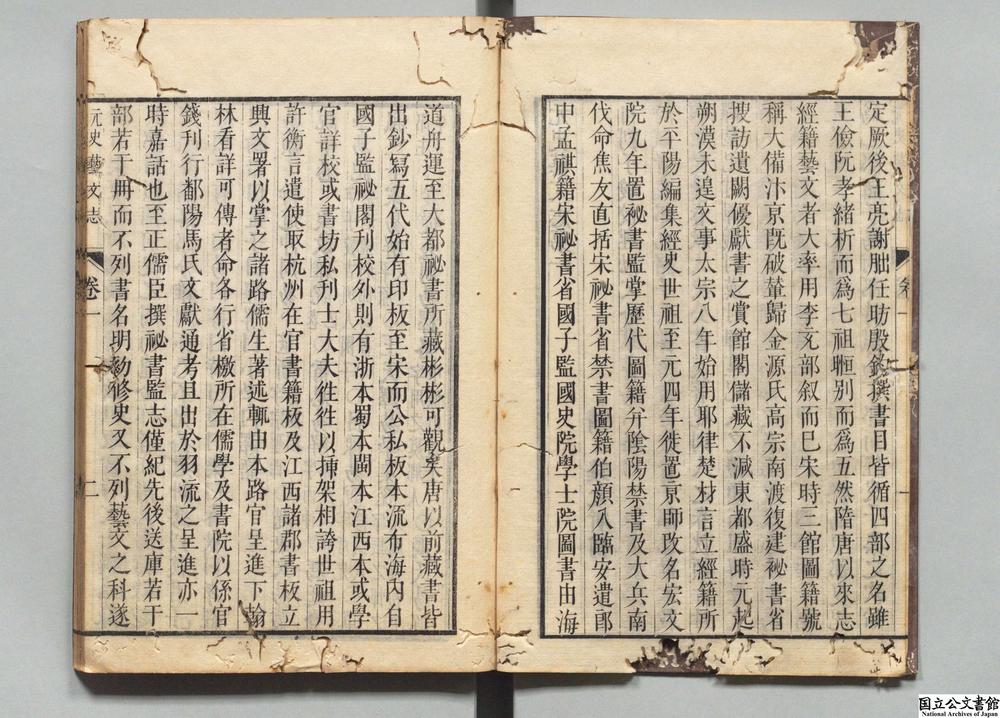 定厥後王亮謝朏任昉殷鈞撰書目皆循四部之名雖
王儉阮孝緒析而爲七祖暅别而爲五然隋唐以來志
經籍藝文者大率用李充部叙而已宋時三館圖籍號
稱大備汴京既破輦歸金源氏高宗南渡復建祕書省
搜訪遺闕優獻書之賞館閣儲藏不減東都盛時元起
朔漠未遑文事太宗八年始用耶律楚材言立經籍所
於平陽編集經史世祖至元四年徙置京師改名宏文
院九年置祕書監掌歷代圖籍并陰陽禁書及大兵南
伐命焦友直括宋祕書省禁書圖籍伯顔入臨安遣郎
中孟祺籍宋祕書省國子監國史院學士院圖書由海
道舟運至大都祕書所藏彬彬可觀矣唐以前藏書皆
出鈔寫五代始有印板至宋而公私板本流布海内自
國子監祕閣刊校外則有浙本蜀本閩本江西本或學
官詳校或書坊私刊士大夫徃徃以揷架相誇世祖用
許衡言遣使取杭州在官書籍板及江西諸郡書板立
興文署以掌之諸路儒生著述輒由本路官呈進下翰
林看詳可傳者命各行省檄所在儒學及書院以係官
錢刊行鄱陽馬氏文獻通考且出於羽流之呈進亦一
時嘉話也至正儒臣撰祕書監志僅紀先後送庫若干
部若干冊而不列書名明初修史又不列藝文之科遂
元史藝文志
卷一
二
国立公文書館
National Archives of Japan